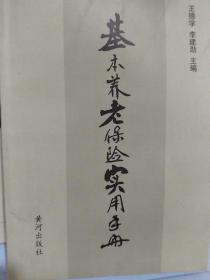 王德学 李建勋 主编
基本养老保险实用手册
黄河出版社